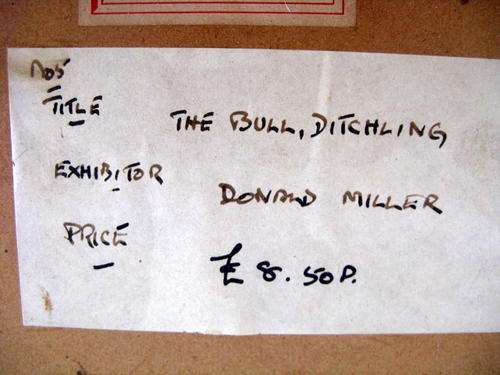 No5
TITLE THE BULL, DITCHLING
EXHIBITOR DONALD MILLER
PRICE £ 8.50P.